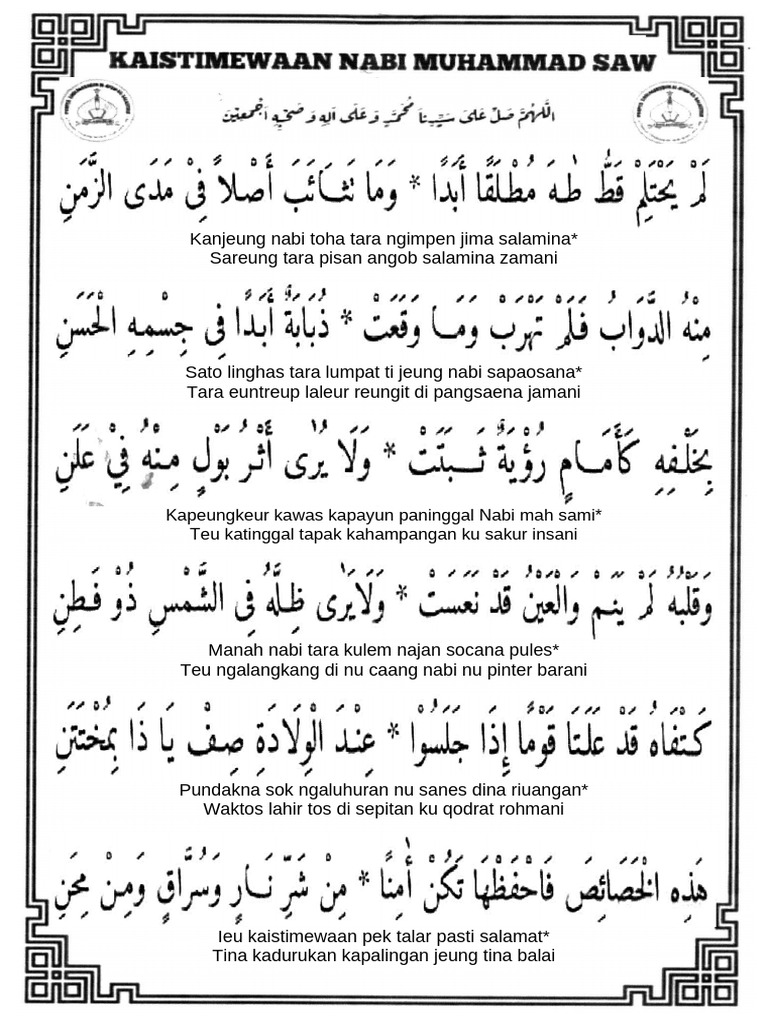 KAISTIMEWAAN NABI MUHAMMAD SAW
اَللّٰهُمَّ صَلِّ عَلَى سَيِّدِنَا مُحَمَّدٍ وَعَلَى آلِهِ وَصَحْبِهِ اَجْمَعِيْنَ
لَمْ يَحْتَلِمْ قَطُّ طٰهَ مُطْلَقًا أَبَدًا * وَمَا تَثَائَبَ أَصْلاً فِيْ مَدَى الزَّمَنِ
Kanjeung nabi toha tara ngimpen jima salamina*
Sareung tara pisan angob salamina zamani
مِنْهُ الدَّوَابُ فَلَمْ تَهْرَبْ وَمَا وَقَعَتْ * ذُبَابَةٌ أَبَدًا فِى جِسْمِهِ الْحَسَنِ
Sato linghas tara lumpat ti jeung nabi sapaosana*
Tara euntreup laleur reungit di pangsaena jamani
بِخَلْفِهِ كَأَمَامٍ رُؤْيَةٌ ثَبَتَتْ * وَلَا يُرٰى أَثْرُ بَوْلٍ مِنْهُ فِيْ عَلَنِ
Kapeungkeur kawas kapayun paninggal Nabi mah sami*
Teu katinggal tapak kahampangan ku sakur insani
وَقَلْبُهُ لَمْ يَنَمْ وَالْعَيْنُ قَدْ نَعَسَتْ * وَلَايَرٰى ظِلَّهُ فِى الشَّمْسِ ذُوْ فَطِنِ
Manah nabi tara kulem najan socana pules*
Teu ngalangkang di nu caang nabi nu pinter barani
كَتْفَاهُ قَدْ عَلَتَا قَوْمًا إِذَا جَلَسُوْا * عِنْدَ الْوِلَادَةِ صِفْ يَا ذَا بِمُخْتَتَنِ
Pundakna sok ngaluhuran nu sanes dina riuangan*
Waktos lahir tos di sepitan ku qodrat rohmani
هَذِهِ الْخَصَائِصَ فَاحْفَظْهَا تَكُنْ أٰمِنًا * مِنْ شَرِّ نَارٍ وَسُرَّاقٍ وَمِنْ مِحَنِ
Ieu kaistimewaan pek talar pasti salamat*
Tina kadurukan kapalingan jeung tina balai